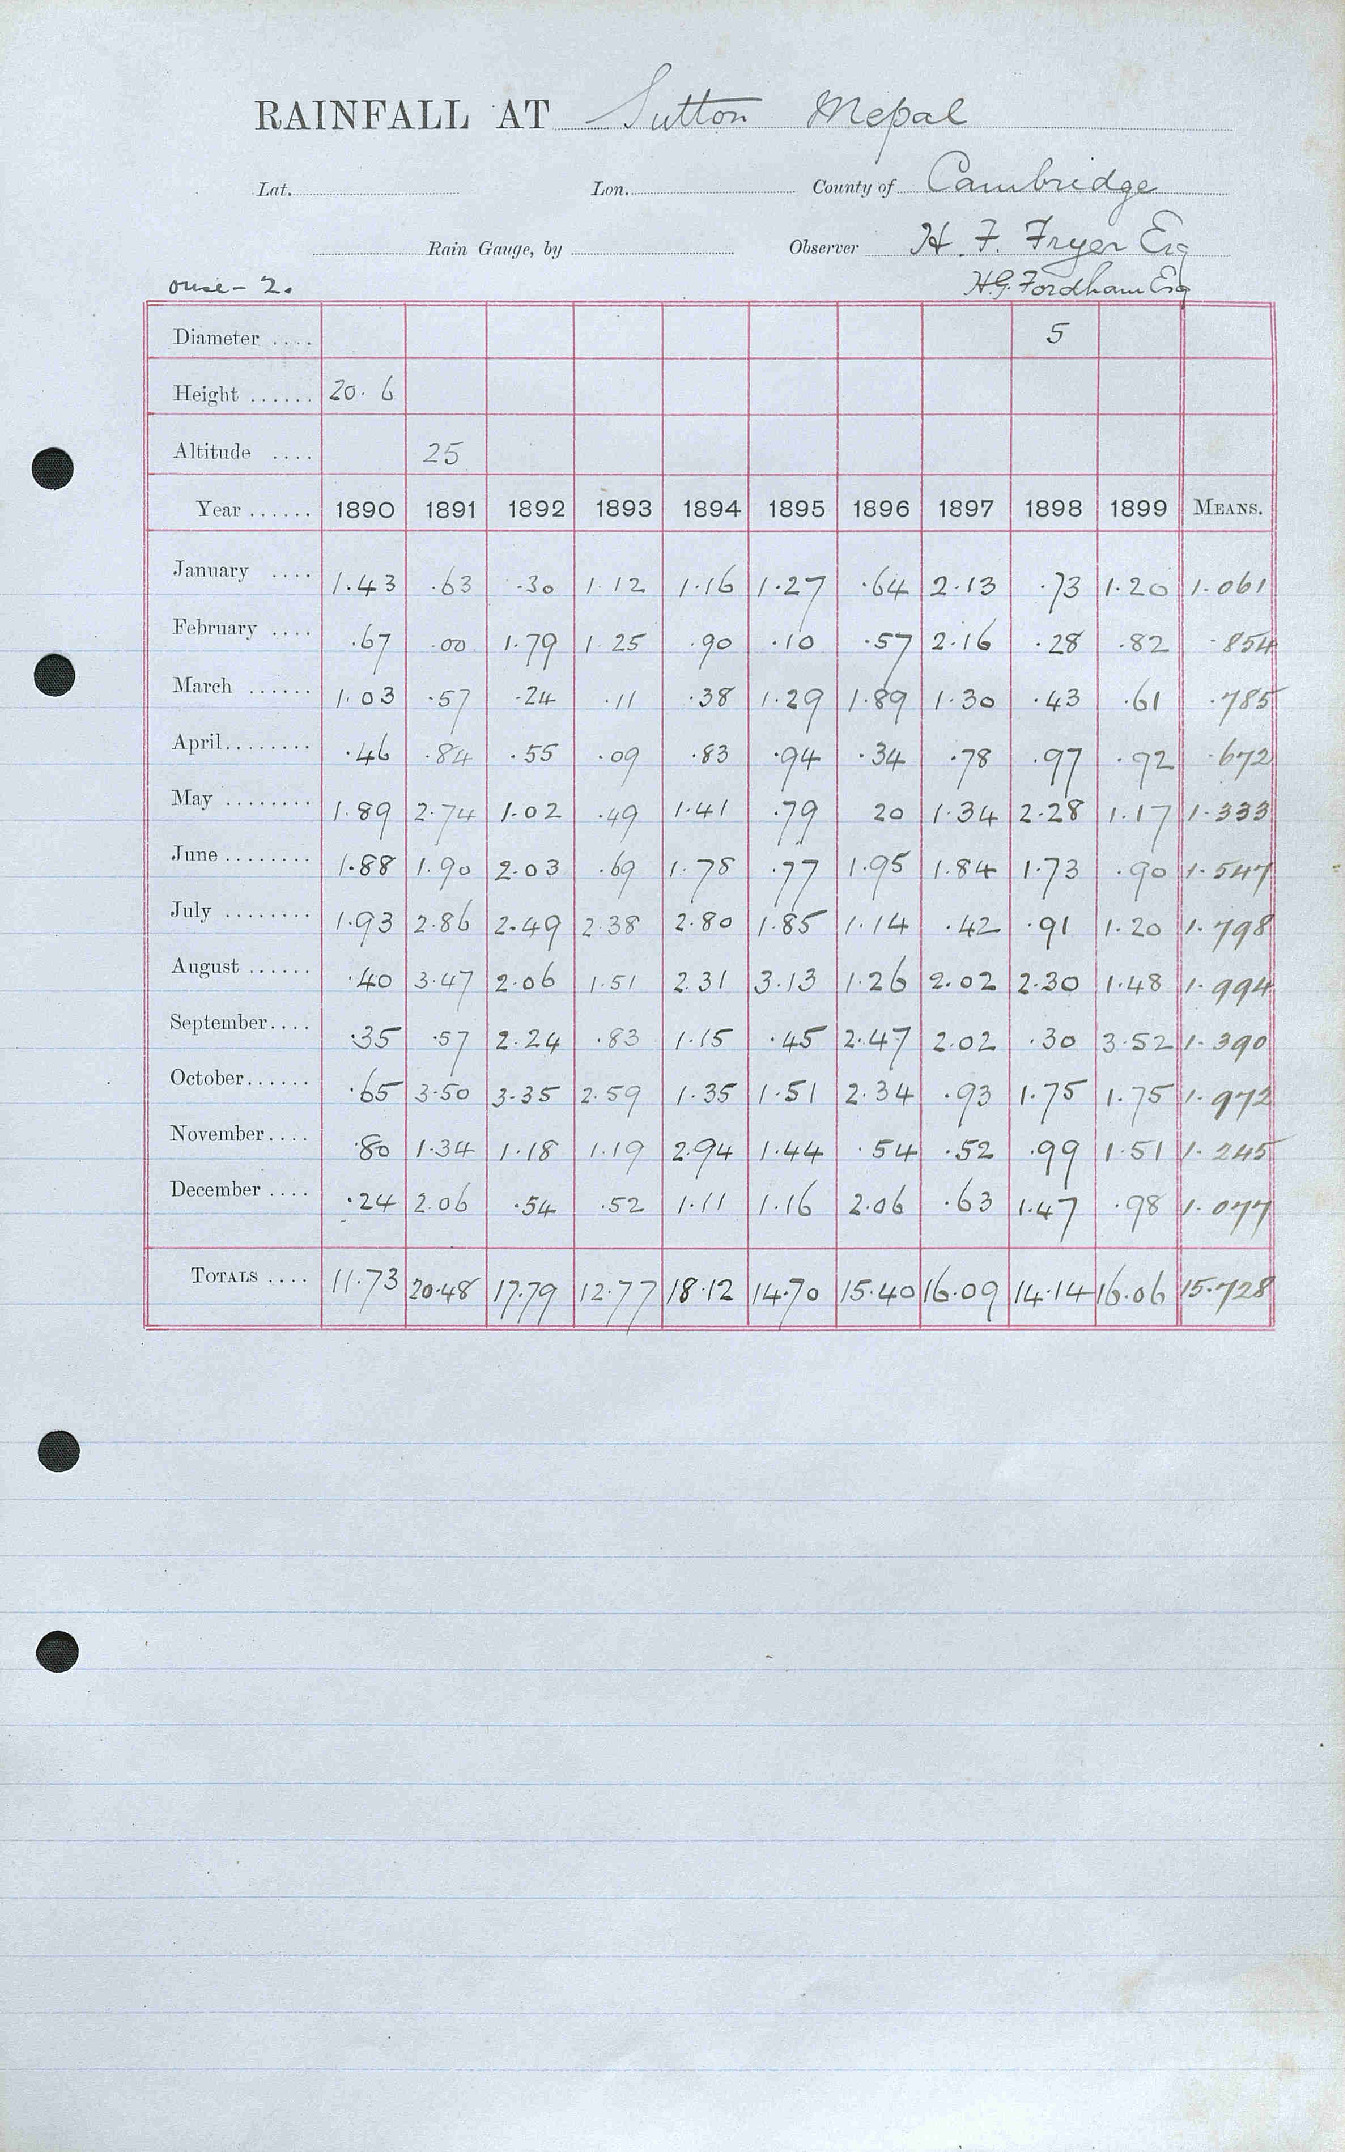 RAINFALL AT Sutton Mepal
Lat. Lon. County of Cambridge
Rain Gauge, by Observer H. F. Fryer Esq
ouse - 2. H.G. Fordham Esq
Diameter .... 5
Height ...... 20. 6
Altitude .... 25
Year ...... 1890 1891 1892 1893 1894 1895 1896 1897 1898 1899 MEANS.
January .... 1.43 .63 .30 1.12 1.16 1.27 .64 2.13 .73 1.20 1.061
February .... .67 .00 1.79 1.25 .90 .10 .57 2.16 .28 .82 .854
March ...... 1.03 .57 .24 .11 .38 1.29 1.89 1.30 .43 .61 .785
April........ .46 .84 .55 .09 .83 .94 .34 .78 .97 .92 .672
May ........ 1.89 2.74 1.02 .49 1.41 .79 20 1.34 2.28 1.17 1.333
June ........ 1.88 1.90 2.03 .69 1.78 .77 1.95 1.84 1.73 .90 1.547
July ........ 1.93 2.86 2.49 2.38 2.80 1.85 1.14 .42 .91 1.20 1.798
August ...... .40 3.47 2.06 1.51 2.31 3.13 1.26 2.02 2.30 1.48 1.994
September.... .35 .57 2.24 .83 1.15 .45 2.47 2.02 .30 3.52 1.390
October...... .65 3.50 3.35 2.59 1.35 1.51 2.34 .93 1.75 1.75 1.972
November.... .80 1.34 1.18 1.19 2.94 1.44 .54 .52 .99 1.51 1.245
December .... .24 2.06 .54 .52 1.11 1.16 2.06 .63 1.47 .98 1.077
TOTALS .... 11.73 20.48 17.79 12.77 18.12 14.70 15.40 16.09 14.14 16.06 15.728